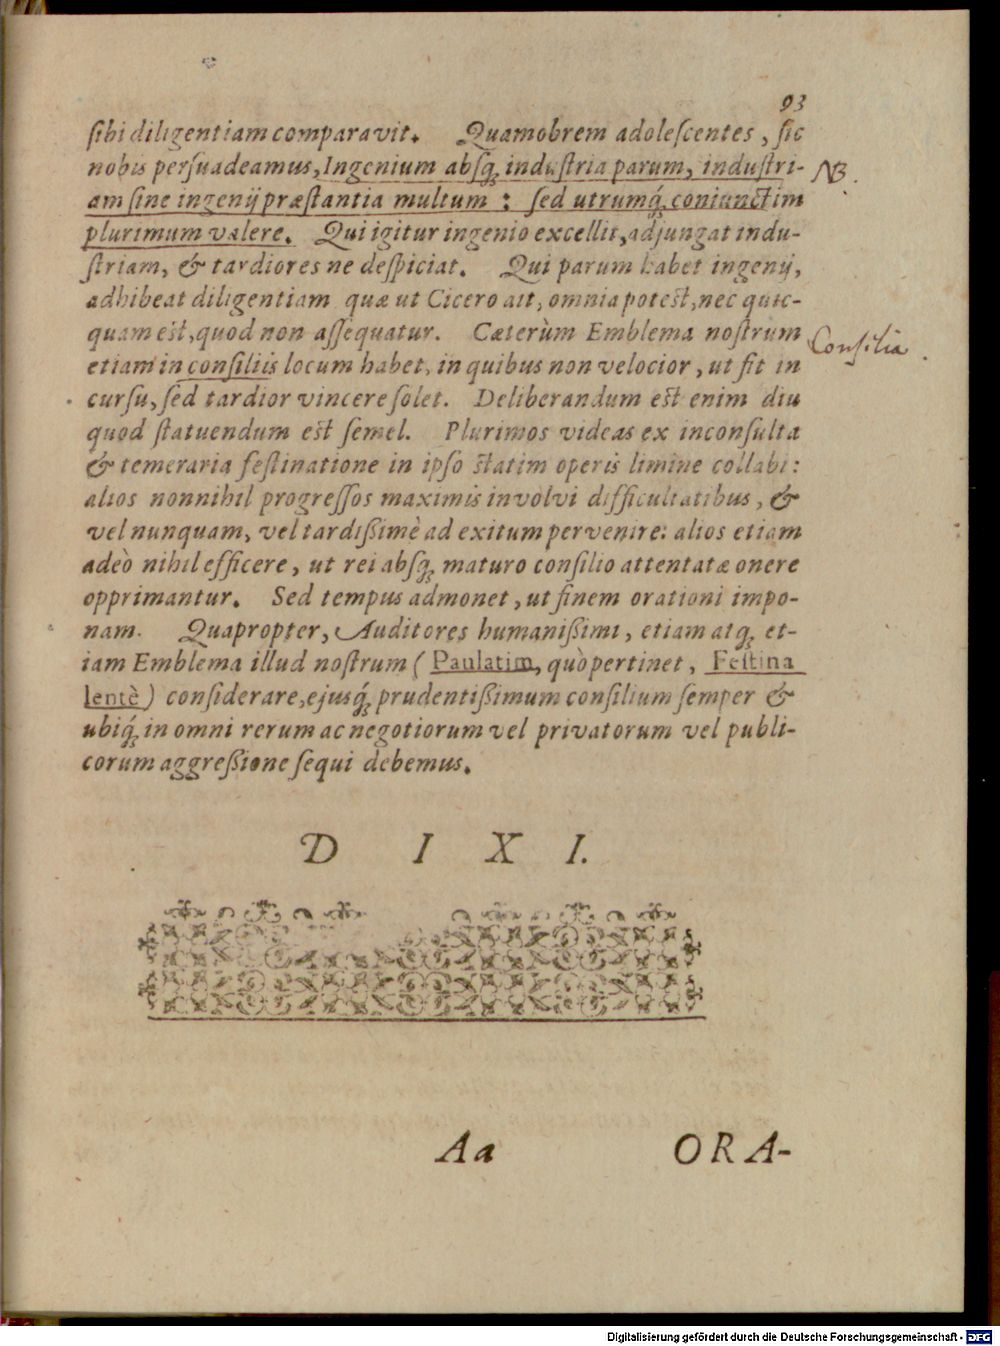 93
ſibi diligentiam comparavit. Quamobrem adoleſcentes, ſic
nobis perſuadeamus, Ingenium abſq́; induſtria parum, induſtri-
am ſine ingenij præſtantia multum: ſed utrumq́; coniunctim
plurimum valere. Qui igitur ingenio excellit, adjungat indu-
ſtriam, & tardiores ne deſpiciat. Qui parum habet ingenij,
adhibeat diligentiam quæ ut Cicero ait, omnia poteſt, nec quic-
quam eſt, quod non aſſequatur. Cæterùm Emblema noſtrum
etiam in conſiliis locum habet, in quibus non velocior, ut fit in
curſu, ſed tardior vincere ſolet. Deliberandum eſt enim diu
quod ſtatuendum eſt ſemel. Plurimos videas ex inconſulta
& temeraria feſtinatione in ipſo ſtatim operis limine collabi:
alios nonnihil progreſſos maximis involvi difficultatibus, &
vel nunquam, vel tardißimè ad exitum pervenire: alios etiam
adeò nihil efficere, ut rei abſq́; maturo conſilio attentatæ onere
opprimantur. Sed tempus admonet, ut finem orationi impo-
nam. Quapropter, Auditores humanißimi, etiam atq́; et-
iam Emblema illud noſtrum (Paulatim, quò pertinet, Feſtina
lentè) conſiderare, ejusq́; prudentißimum conſilium ſemper &
ubiq́; in omni rerum ac negotiorum vel privatorum vel publi-
corum aggreßione ſequi debemus.
NB.
Conſilia.
D I X I.
Aa ORA-
Digitalisierung gefördert durch die Deutsche Forschungsgemeinschaft - DFG